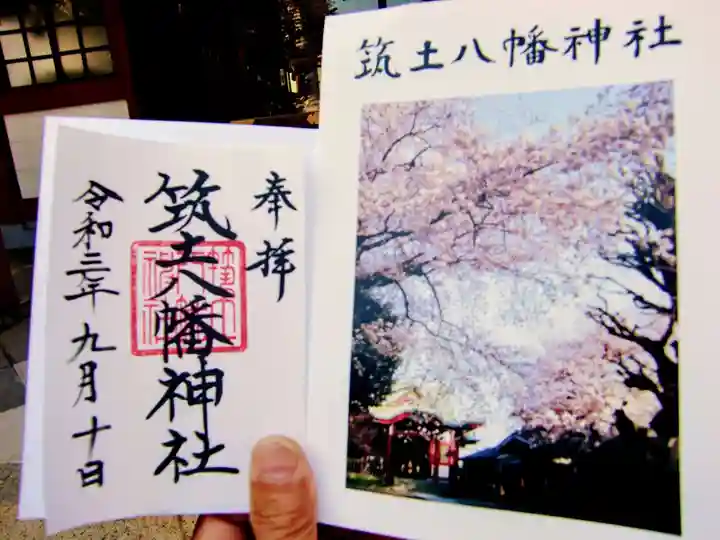 筑土八幡神社
奉拝
筑土八幡神社
令和二年九月十日